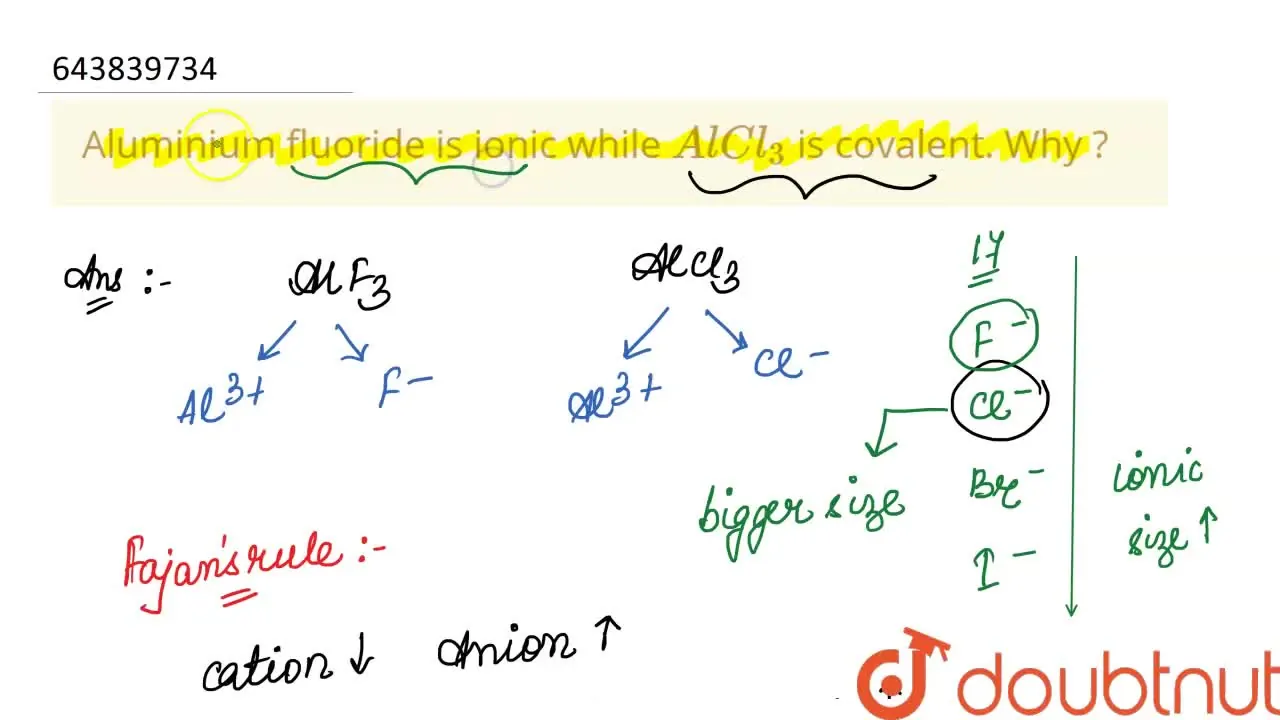 643839734
Aluminium fluoride is ionic while AlCl₃ is covalent. Why ?
Ans :-
AlF₃
AlCl₃
17
Al³⁺
F⁻
Al³⁺
Cl⁻
F⁻
Cl⁻
Br⁻
I⁻
bigger size
ionic
size ↑
Fajan's rule :-
cation ↓ Anion ↑
doubtnut